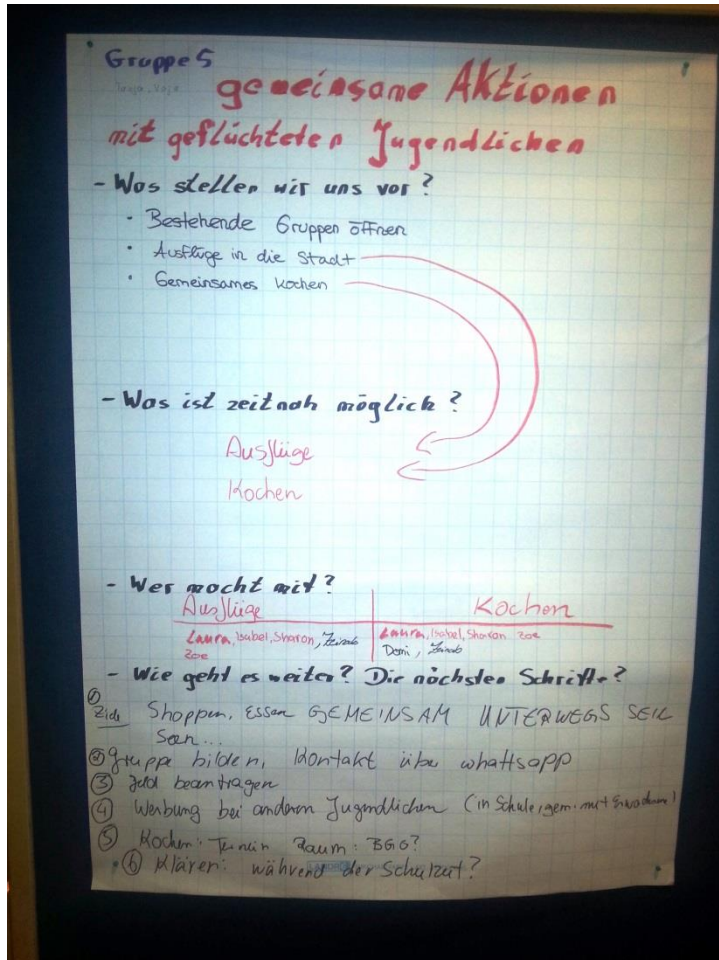 Gruppe 5
gemeinsame Aktionen
mit geflüchteten Jugendlichen
- Was stellen wir uns vor?
· Bestehende Gruppen öffnen
· Ausflüge in die Stadt
· Gemeinsames Kochen
- Was ist zeitnah möglich?
Ausflüge
Kochen
- Wer macht mit?
Ausflüge Kochen
Laura, Isabel, Sharon, Zeinab Laura, Isabel, Sharon Zoe
Zoe Domi, Zeinab
- Wie geht es weiter? Die nächsten Schritte?
① Ziele Shoppen, Essen GEMEINSAM UNTERWEGS SEIN
② Gruppe bilden, Kontakt über whattsapp
③ Geld beantragen
④ Werbung bei anderen Jugendlichen (in Schule, gem. mit Erwachsene)
⑤ Kochen: Termin Raum: BGO?
⑥ Klären: während der Schulzeit?